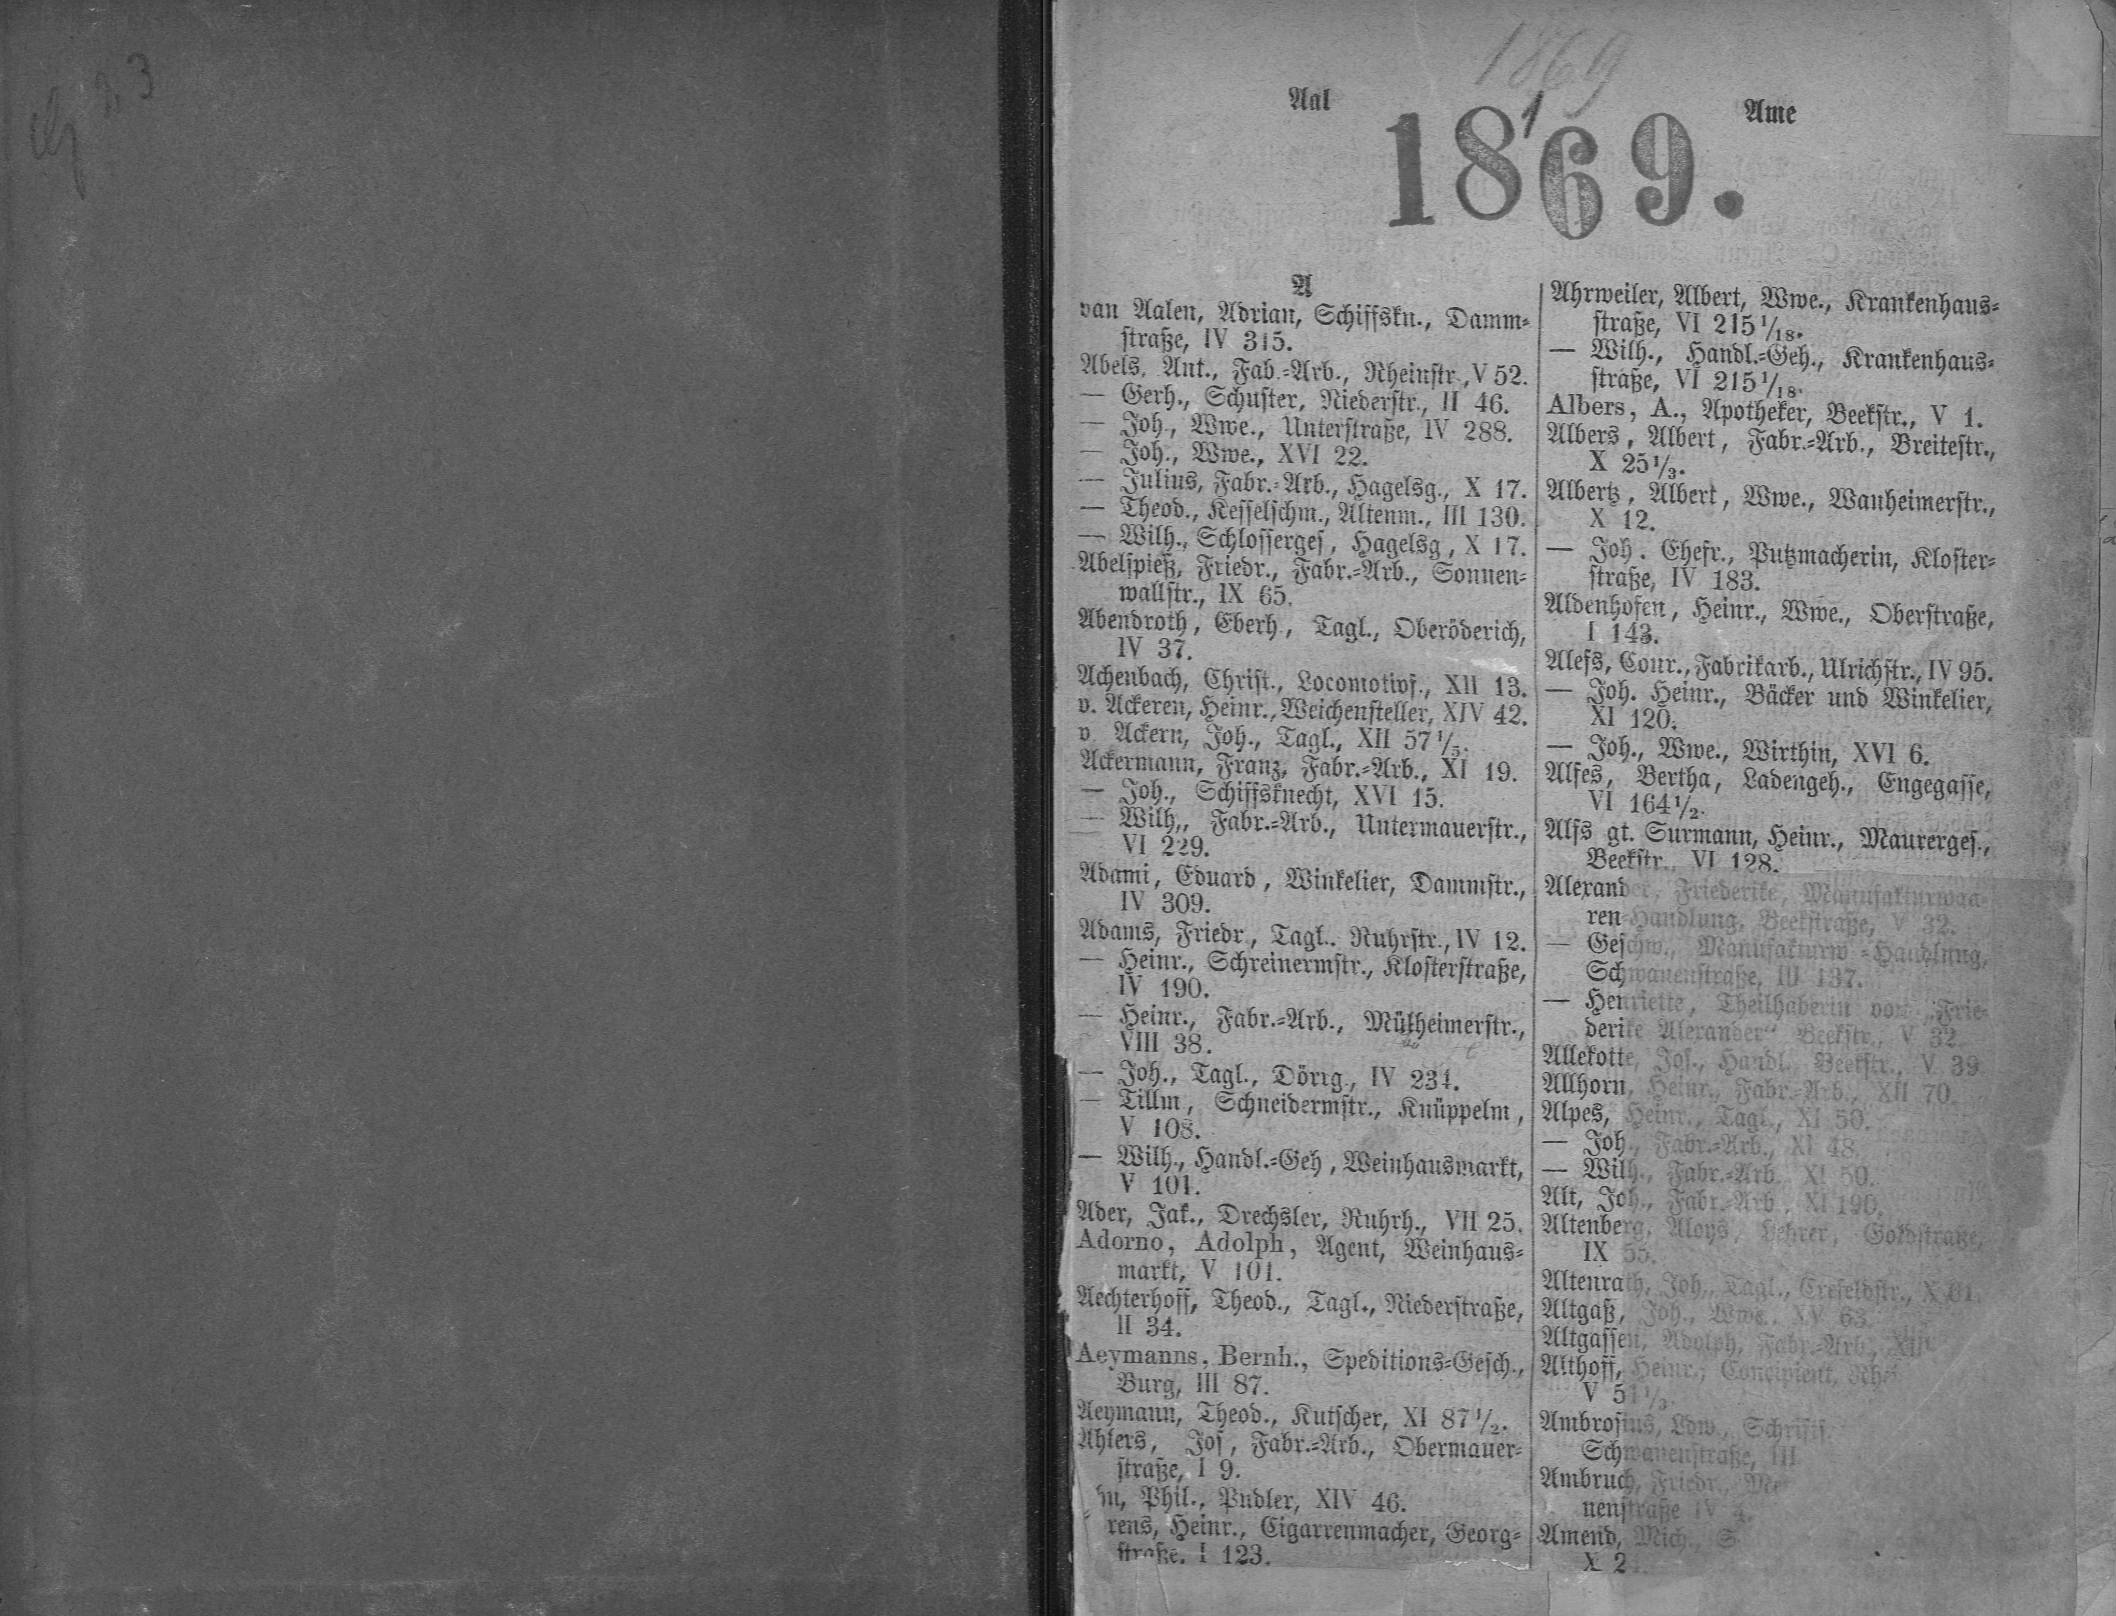 1869
Aal
1869.
Ame
A
van Aalen, Adrian, Schiffskn., Damm-
straße, IV 315.
Abels, Ant., Fab.-Arb., Rheinstr., V 52.
— Gerh., Schuster, Niederstr., II 46.
— Joh., Wwe., Unterstraße, IV 288.
— Joh., Wwe., XVI 22.
— Julius, Fabr.-Arb., Hagelsg., X 17.
— Theod., Kesselschm., Altenm., III 130.
— Wilh., Schlosserges, Hagelsg, X 17.
Abelspieß, Friedr., Fabr.-Arb., Sonnen-
wallstr., IX 65.
Abendroth, Eberh., Tagl., Oberöderich,
IV 37.
Achenbach, Christ., Locomotivf., XII 13.
v. Ackeren, Heinr., Weichensteller, XIV 42.
v. Ackern, Joh., Tagl., XII 57 1/5.
Ackermann, Franz, Fabr.-Arb., XI 19.
— Joh., Schiffsknecht, XVI 15.
— Wilh., Fabr.-Arb., Untermauerstr.,
VI 229.
Adami, Eduard, Winkelier, Dammstr.,
IV 309.
Adams, Friedr., Tagl., Ruhrstr., IV 12.
— Heinr., Schreinermstr., Klosterstraße,
IV 190.
— Heinr., Fabr.-Arb., Mülheimerstr.,
VIII 38.
— Joh., Tagl., Dörrg., IV 234.
— Tillm, Schneidermstr., Knüppelm,
V 108.
— Wilh., Handl.-Geh, Weinhausmarkt,
V 101.
Ader, Jak., Drechsler, Ruhrh., VII 25.
Adorno, Adolph, Agent, Weinhaus-
markt, V 101.
Aechterhoff, Theod., Tagl., Niederstraße,
II 34.
Aeymanns, Bernh., Speditions-Gesch.,
Burg, III 87.
Aeymann, Theod., Kutscher, XI 87 1/2.
Ahlers, Jos, Fabr.-Arb., Obermauer-
straße, I 9.
Phil., Pudler, XIV 46.
rens, Heinr., Cigarrenmacher, Georg-
straße, I 123.
Ahrweiler, Albert, Wwe., Krankenhaus-
straße, VI 215 1/18.
— Wilh., Handl.-Geh., Krankenhaus-
straße, VI 215 1/18.
Albers, A., Apotheker, Beekstr., V 1.
Albers, Albert, Fabr.-Arb., Breitestr.,
X 25 1/3.
Albertz, Albert, Wwe., Wanheimerstr.,
X 12.
— Joh. Ehefr., Putzmacherin, Kloster-
straße, IV 183.
Aldenhofen, Heinr., Wwe., Oberstraße,
I 143.
Alefs, Conr., Fabrikarb., Ulrichstr., IV 95.
— Joh. Heinr., Bäcker und Winkelier,
XI 120.
— Joh., Wwe., Wirthin, XVI 6.
Alfes, Bertha, Ladengeh., Engegasse,
VI 164 1/2.
Alfs gt. Surmann, Heinr., Maurerges.,
Beekstr., VI 128.
Alexander, Friederike, Manufakturwaa-
ren-Handlung, Beekstraße, V 32.
— Geschw., Manufakturw.-Handlung,
Schwanenstraße, III 137.
— Henriette, Theilhaberin von „Frie-
derike Alexander" Beekstr., V 32.
Allekotte, Jos., Handl., Beekstr., V 39.
Allhorn, Heinr., Fabr.-Arb., XII 70.
Alpes, Heinr., Tagl., XI 50.
— Joh., Fabr.-Arb., XI 48.
— Wilh., Fabr.-Arb. XI 50.
Alt, Joh., Fabr.-Arb., XI 190.
Altenberg, Aloys, Lehrer, Goldstraße,
IX 55.
Altenrath, Joh., Tagl., Crefeldstr., X 61.
Altgaß, Joh., Wwe., XV 63.
Altgassen, Adolph, Fabr.-Arb., XI
Althoff, Heinr., Concipient, Rh
V 51 1/3.
Ambrosius, Ldw., Schrifts.
Schwanenstraße, III
Ambruch, Friedr.,
nenstraße IV 4.
Amend, Mich.,
X 2